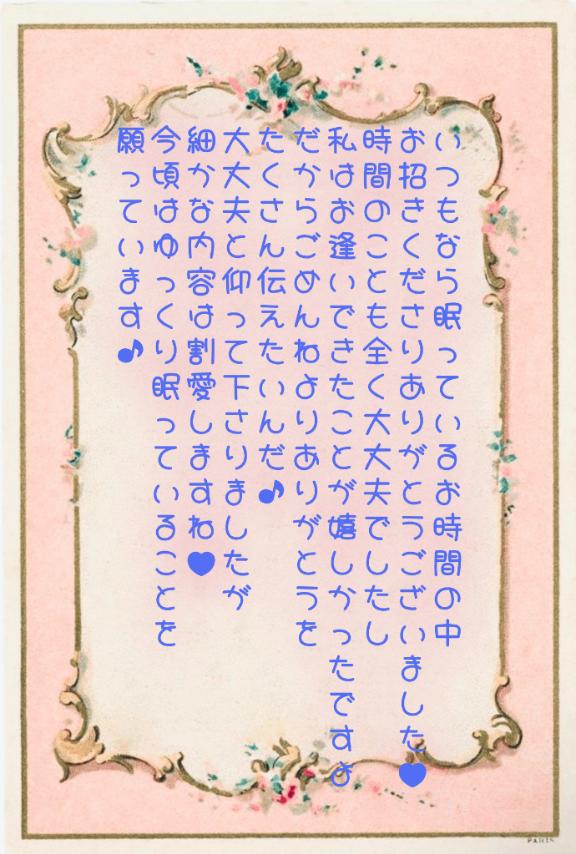 いつもなら眠っているお時間の中
お招きくださりありがとうございました♥
時間のことも全く大丈夫でしたし
私はお逢いできたことが嬉しかったですよ
だからごめんねよりありがとうを
たくさん伝えたいんだ♪
大丈夫と仰って下さりましたが
細かな内容は割愛しますね♥
今頃はゆっくり眠っていることを
願っています♪
PARIS